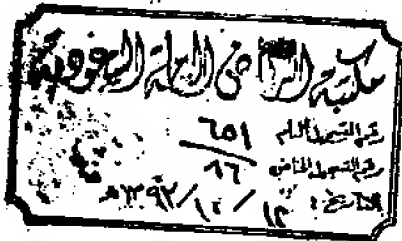 مكتبة الرياض العامة السعودية
رقم التسجيل العام ٦٥١
رقم التسجيل الخاص ٨٦
التاريخ: ١٣ / ١٢ / ١٣٩٢هـ